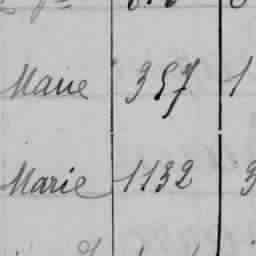 Marie 357 1
Marie 1132 3